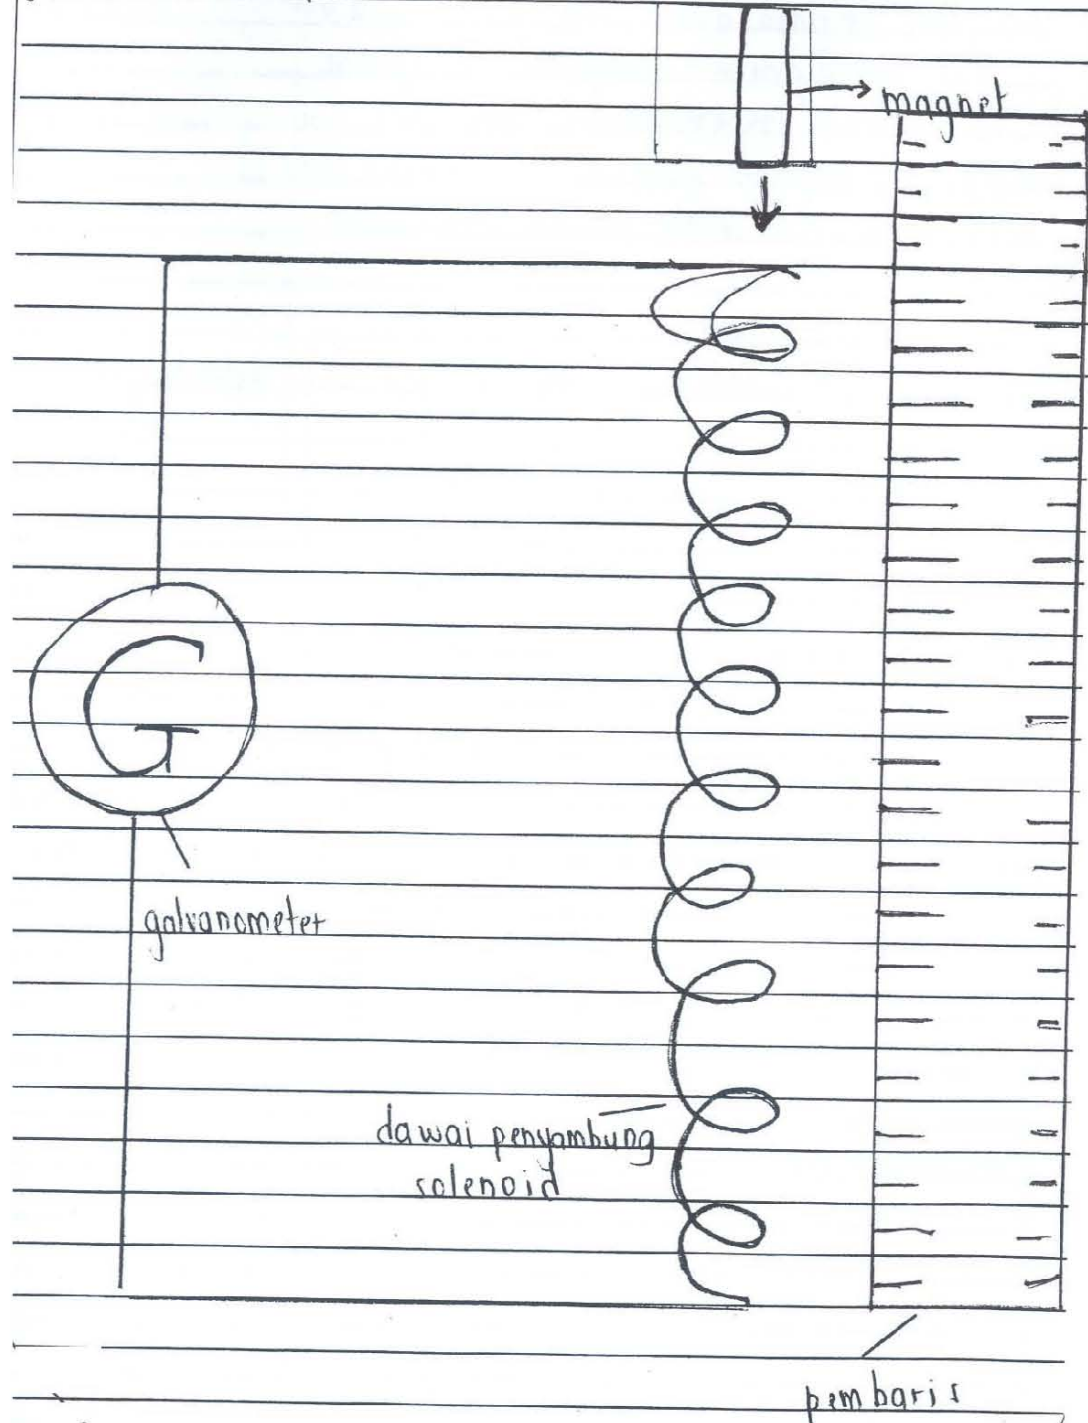 magnet
G
galvanometer
dawai penyambung
solenoid
pembaris